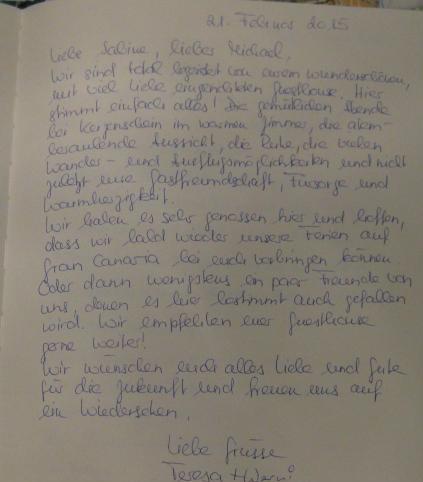 21. Februar 2015
Liebe Sabine, lieber Michael,
Wir sind total begeistert von eurem wunderschönen,
mit viel Liebe eingerichteten Guesthouse. Hier
stimmt einfach alles! Die gemütlichen Abende
bei Kerzenschein im warmen Zimmer, die atem-
beraubende Aussicht, die Ruhe, die vielen
Wander- und Ausflugsmöglichkeiten und nicht
zuletzt eure Gastfreundschaft, Fürsorge und
Warmherzigkeit.
Wir haben es sehr genossen hier und hoffen,
dass wir bald wieder unsere Ferien auf
Gran Canaria bei euch verbringen können.
Oder dann wenigstens ein paar Freunde von
uns, denen es hier bestimmt auch gefallen
wird. Wir empfehlen euer Guesthouse
gerne weiter!
Wir wünschen euch alles Liebe und Gute
für die Zukunft und freuen uns auf
ein Wiedersehen.
Liebe Grüsse
Teresa +